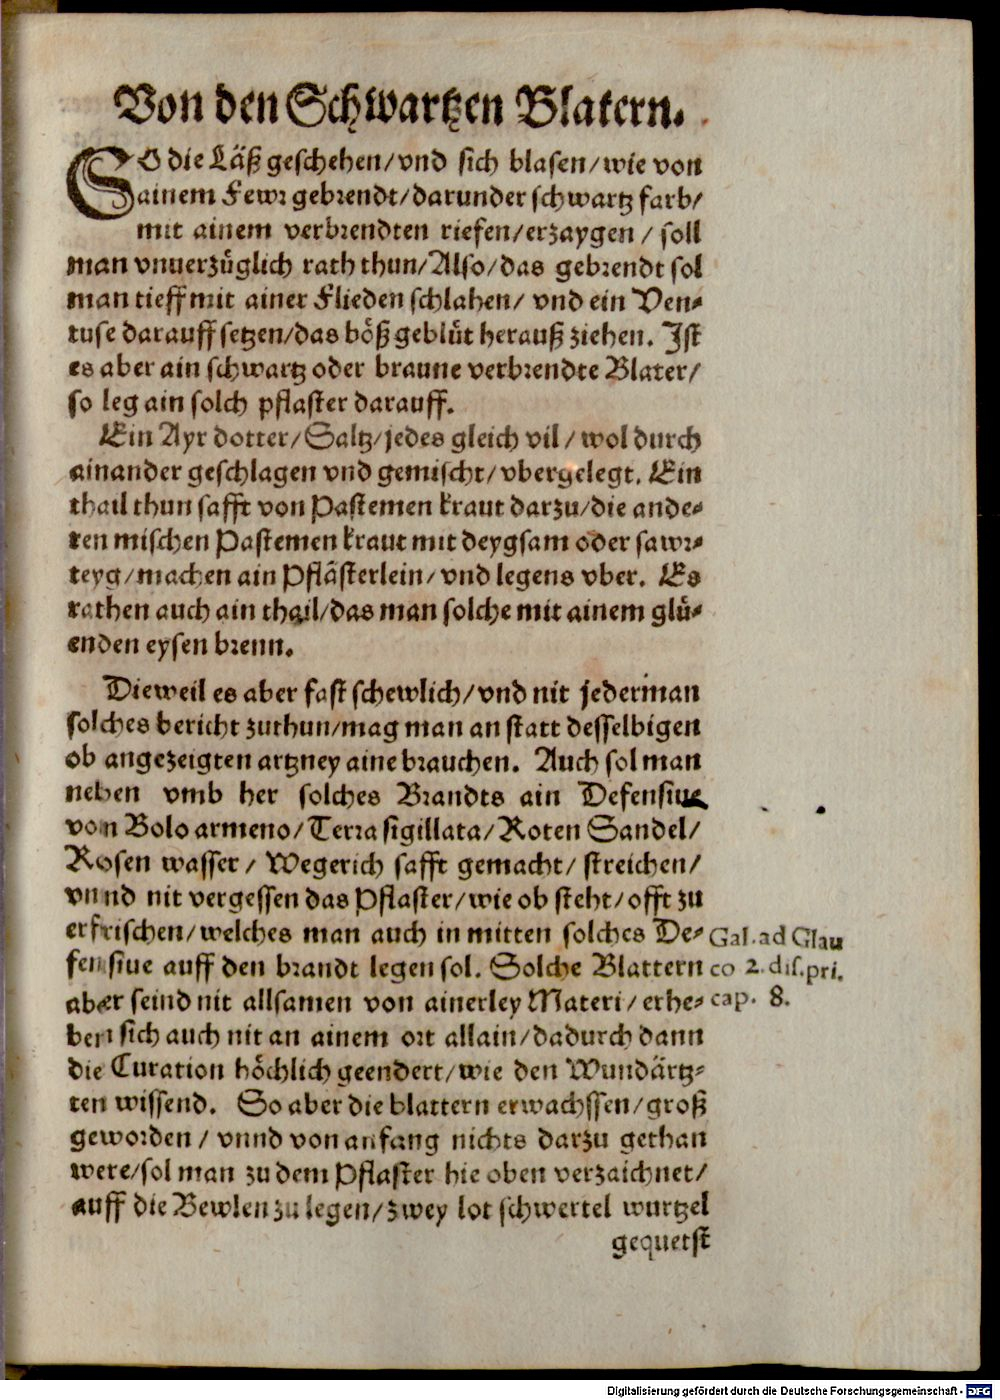 Von den Schwartzen Blatern.
SO die Läß geschehen/vnd sich blasen/wie von
ainem Fewr gebrendt/darunder schwartz farb/
mit ainem verbrendten riefen/erzaygen / soll
man vnuerzüglich rath thun/Also/das gebrendt sol
man tieff mit ainer Flieden schlahen/ vnd ein Ven-
tuse darauff setzen/das böß geblüt herauß ziehen. Ist
es aber ain schwartz oder braune verbrendte Blater/
so leg ain solch pflaster darauff.
Ein Ayr dotter/Saltz/jedes gleich vil/wol durch
ainander geschlagen vnd gemischt/vbergelegt. Ein
thail thun safft von Pastemen kraut darzu/die ande-
ren mischen Pastemen kraut mit deygsam oder sawr-
teyg/machen ain Pflästerlein/vnd legens vber. Es
rathen auch ain thail/das man solche mit ainem glü-
enden eysen brenn.
Dieweil es aber fast schewlich/vnd nit jederman
solches bericht zuthun/mag man an statt desselbigen
ob angezeigten artzney aine brauchen. Auch sol man
neben vmb her solches Brandts ain Defensiue
von Bolo armeno/Terra sigillata/Roten Sandel/
Rosen wasser/ Wegerich safft gemacht/ streichen/
vnnd nit vergessen das Pflaster/wie ob steht/offt zu
erfrischen/welches man auch in mitten solches De-
fensiue auff den brandt legen sol. Solche Blattern
aber seind nit allsamen von ainerley Materi/erhe-
ben sich auch nit an ainem ort allain/dadurch dann
die Curation höchlich geendert/wie den Wundärtz-
ten wissend. So aber die blattern erwachssen/groß
geworden / vnnd von anfang nichts darzu gethan
were/sol man zu dem Pflaster hie oben verzaichnet/
auff die Bewlen zu legen/zwey lot schwertel wurtzel
gequetst
Gal. ad Glau
co 2. dis. pri.
cap. 8.
Digitalisierung gefördert durch die Deutsche Forschungsgemeinschaft - DFG